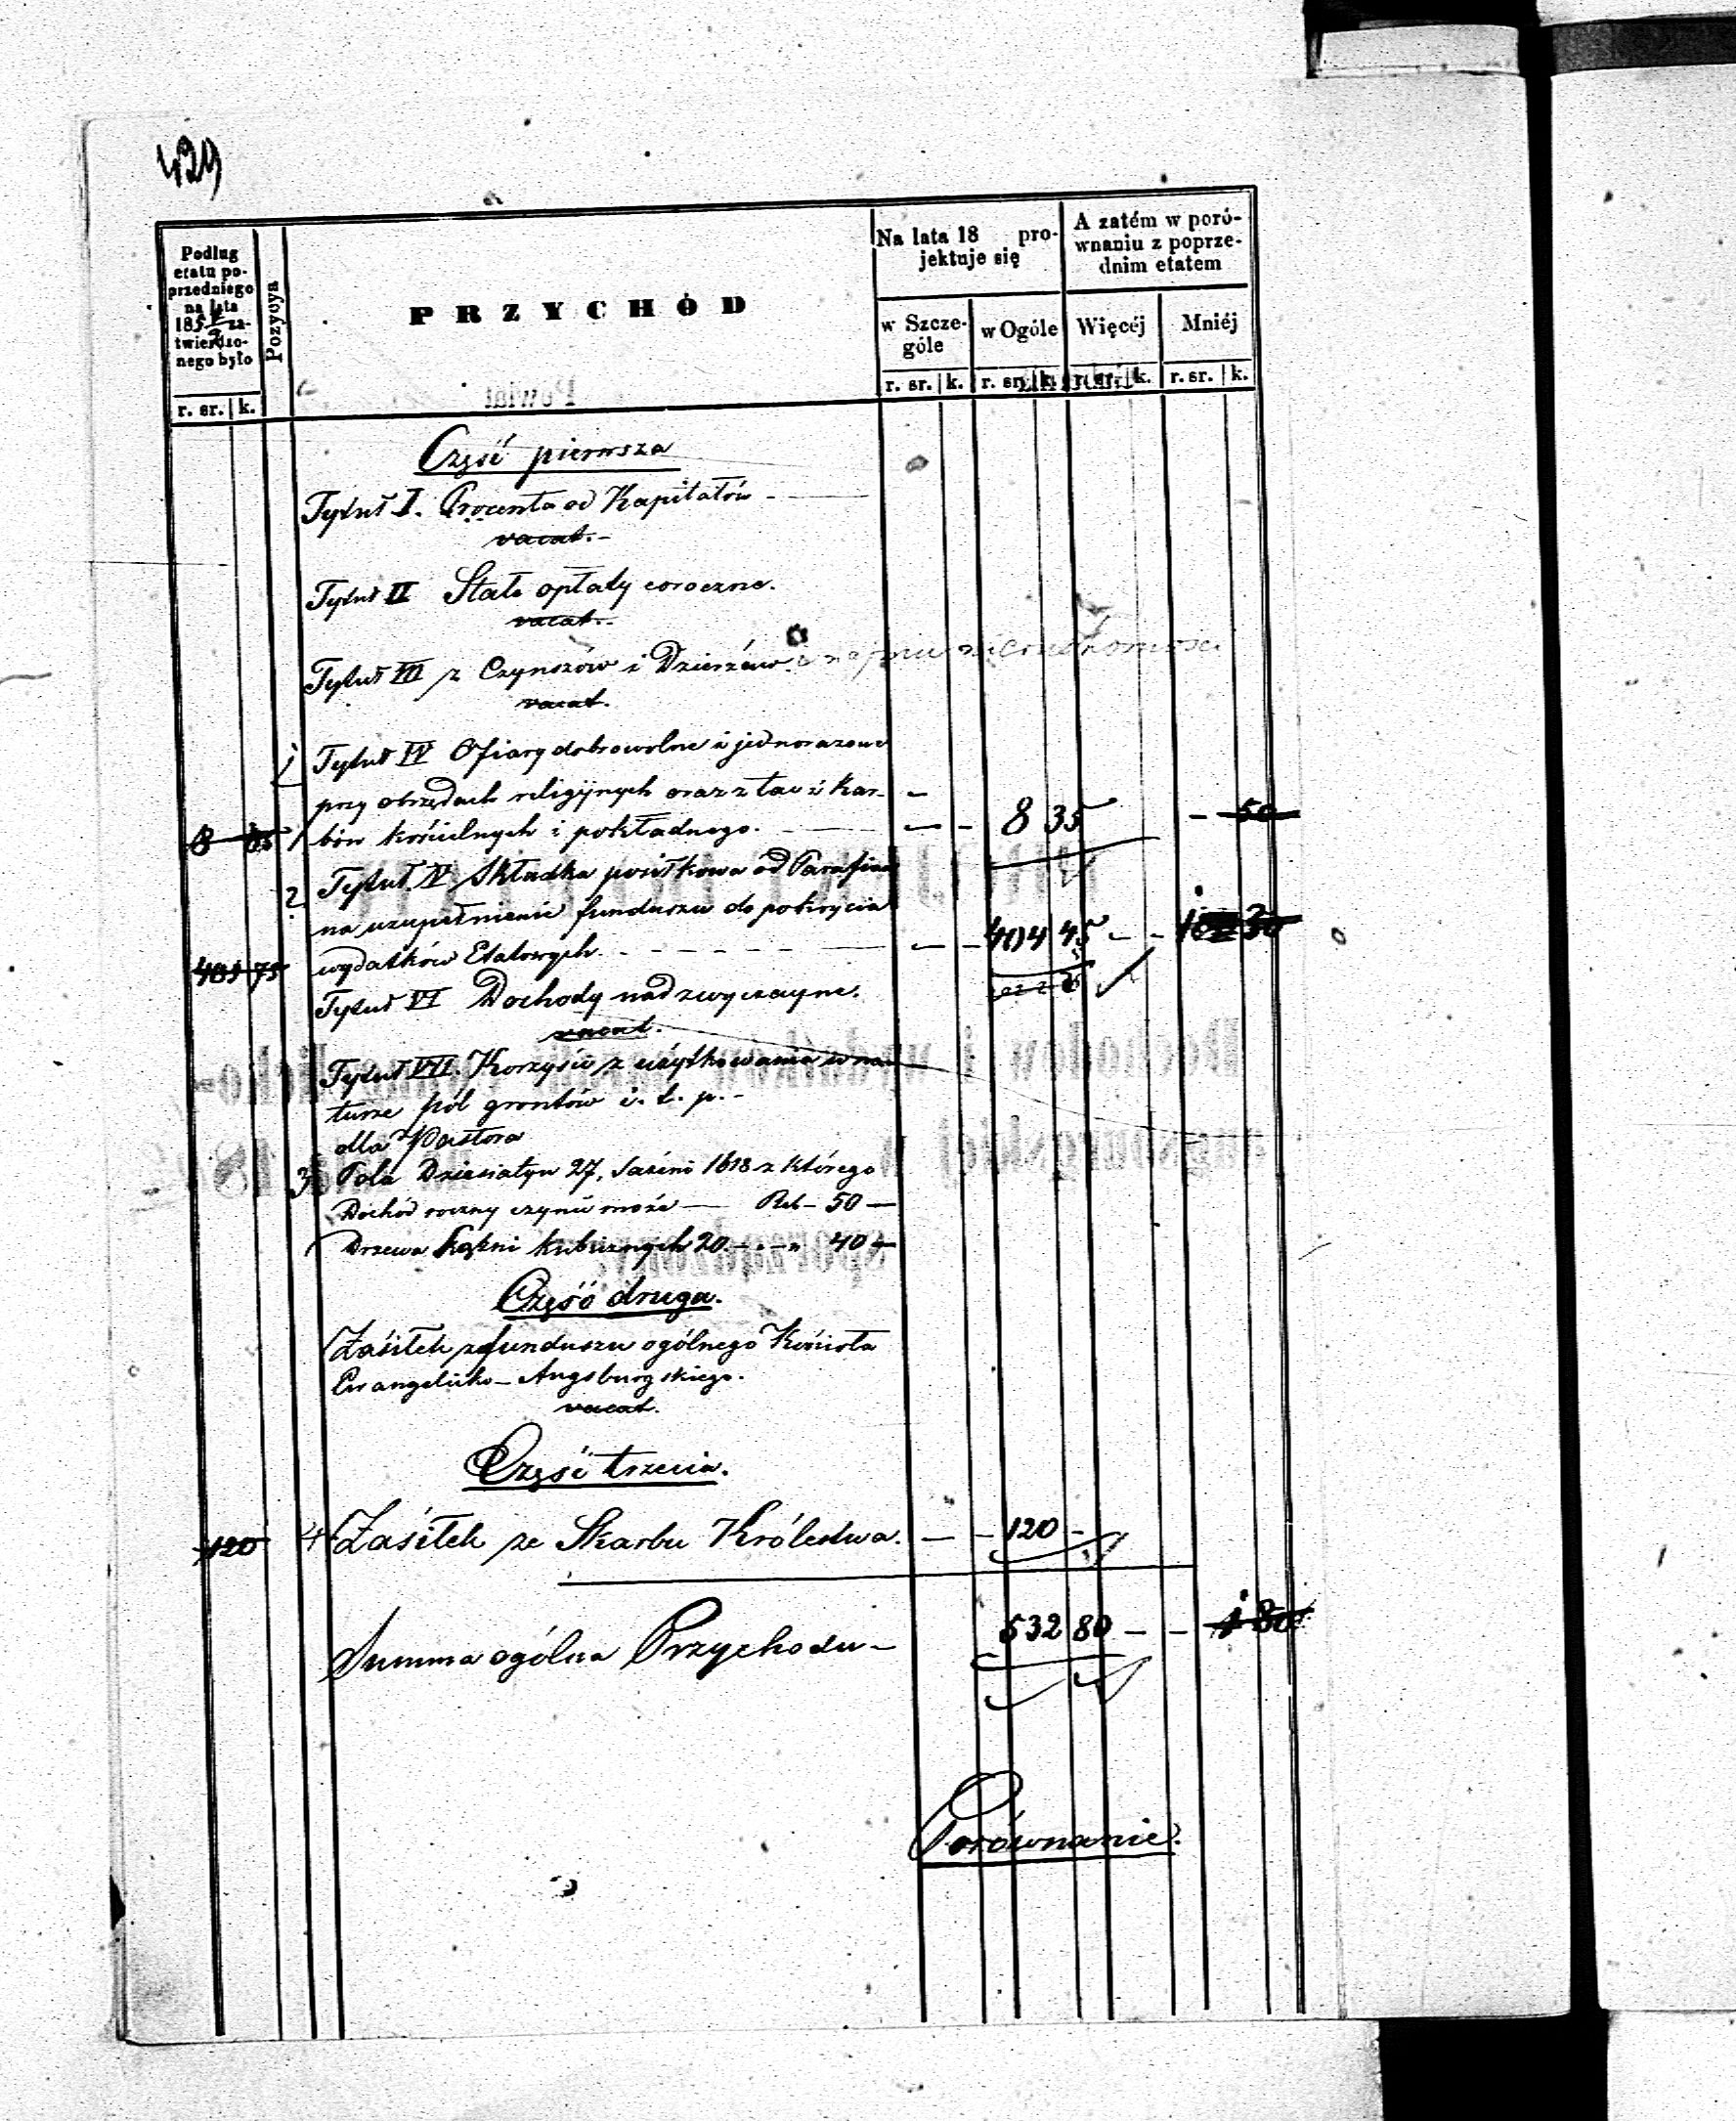 429
Podług
etatu po-
przedniego
na lata
185 za-
twierdzo-
nego było
r. sr. k.
Pozycya
PRZYCHÓD
Na lata 18 pro-
jektuje się
w Szcze-
góle
r. sr. k.
w Ogóle
r. sr. k.
A zatém w poró-
wnaniu z poprze-
dnim etatem
Więcéj
r. sr. k.
Mniéj
r. sr. k.
Powiat
Część pierwsza
Tytuł I. Procenta od Kapitałów -
vacat.-
Tytuł II Stałe opłaty coroczne.
vacat.-
Tytuł III z Czynszów i Dzierżaw i najmu nieruchomości
vacat.
1 Tytuł IV Ofiary dobrowolne i jednorazowe
przy obrzędach religijnych oraz z tac i kar- -
8 85 bon kościelnych i pokładnego. - - - 8 35 - 50
2 Tytuł V Składka posiłkowa od Parafian
na uzupełnienie funduszu do pokrycia
75 wydatków Etatowych. - - - 404 45 - - 1 30
Tytuł VI Dochody nadzwyczayne.
vacat.
Tytuł VII. Korzyści z użytkowania w na-
turze pól grontów i. t. p.-
dla Pastora
3 Pola Dziesiatyn 27, Sażeni 1618 z którego
Dochód roczny czynić może — Rub - 50 —
Drzewa Sążni kubicznych 20. - . - „ 40 —
Część druga.
Zasiłek z funduszu ogólnego Kościoła
Ewangelicko - Augsburgskiego.
vacat.
Część trzecia.
120 4 Zasiłek ze Skarbu Królestwa. - - 120 -
Summa ogólna Przychodu - 532 80 - - 1 80
Porównanie.